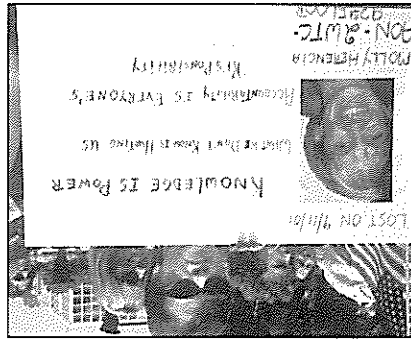 LOST ON 9/11/01
KNOWLEDGE IS POWER
WHAT WE DON'T KNOW IS HURTING US
ACCOUNTABILITY IS EVERYONE'S
RESPONSIBILITY
MOLLY HERENCIA
AON - 2WTC -
FLOOR